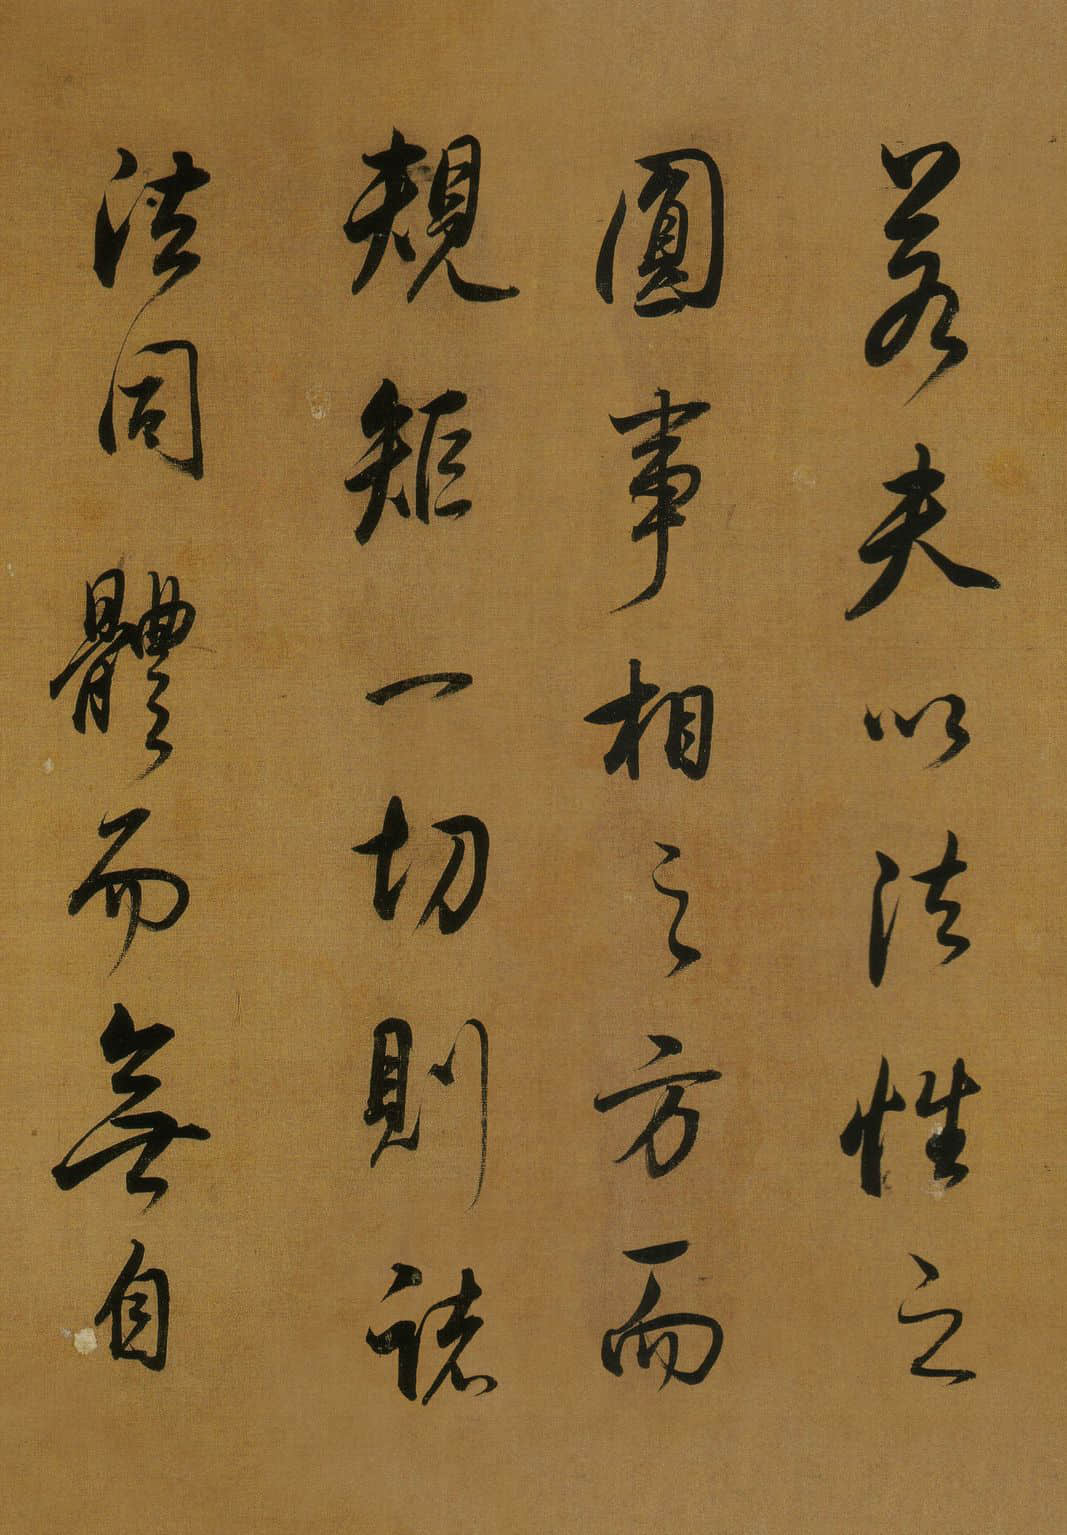 若夫以法性之
圓事相之方而
規矩一切則諸
法同體而無自